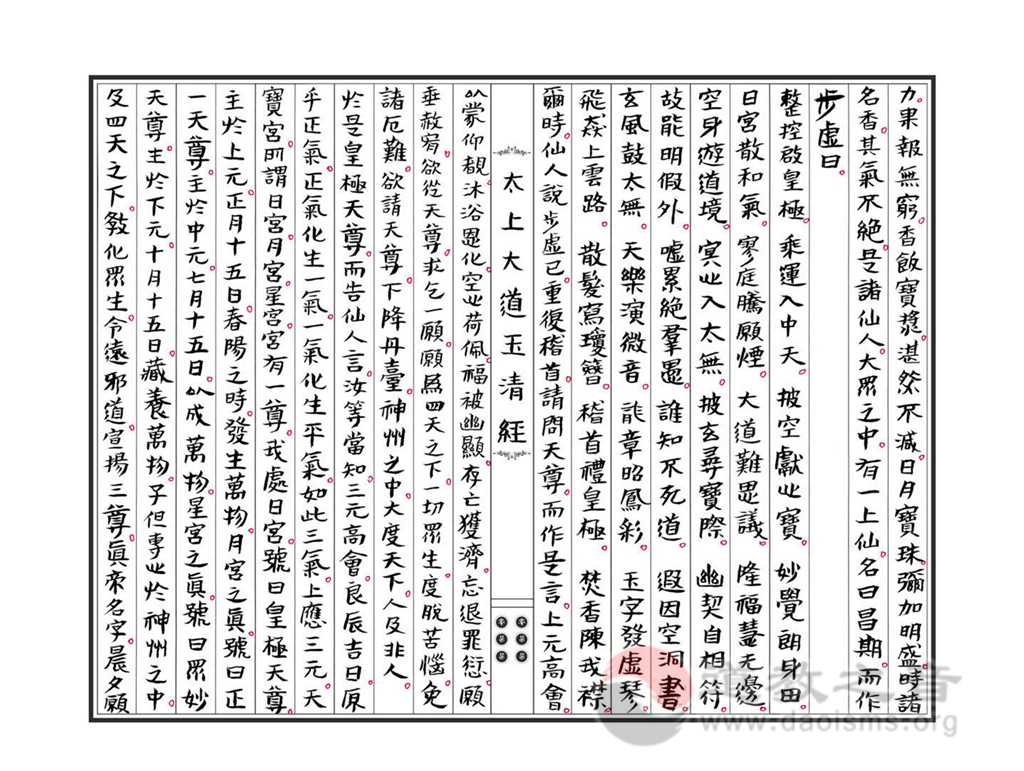 力果報無窮。香飯寶漿。湛然不減。日月寶珠。彌加明盛。時諸
名香。其氣不絕。是諸仙人大眾之中。有一上仙。名曰昌期。而作
步虛曰。
整控啟皇極。乘運入中天。披空獻𣥂寶。妙覺朗身田。
日宮散和氣。寥庭騰願煙。大道難思議。隆福慧无邊。
空身遊道境。冥𣥂入太無。披玄尋寶際。幽契自相符。
故能明假外。噓累絕羣愚。誰知不死道。遐因空洞書。
玄風鼓太無。天樂演微音。龍章昭鳳彩。玉字發虛琴。
飛姦上雲路。散髮寫瓊簪。稽首禮皇極。焚香陳我襟。
爾時。仙人說步虛已。重復稽首。請問天尊。而作是言。上元高會。
太上大道玉清經
以蒙仰覩。沐浴恩化。空𣥂荷佩。福被幽顯。存亡獲濟。忘退罪愆。願
垂赦宥。欲從天尊。求乞一願。願為四天之下。一切眾生。度脫苦惱。免
諸厄難。欲請天尊。下降丹臺。神州之中。大度天下。人及非人。
於是皇極天尊。而告仙人言。汝等當知。三元高會。良辰吉日。原
乎正氣。正氣化生一氣。一氣化生平氣。如此三氣。上應三元。天
寶宮。所謂日宮。月宮。星宮。宮有一尊。我處日宮。號曰皇極天尊。
主於上元。正月十五日。春陽之時。發生萬物。月宮之真。號曰正
一天尊。主於中元。七月十五日。以成萬物。星宮之真。號曰眾妙
天尊。主於下元。十月十五日。藏養萬物。子但專𣥂。於神州之中。
及四天之下。教化眾生。令遠邪道。宣揚三尊。真帝名字。晨夕願
道教之音
www.daoisms.org